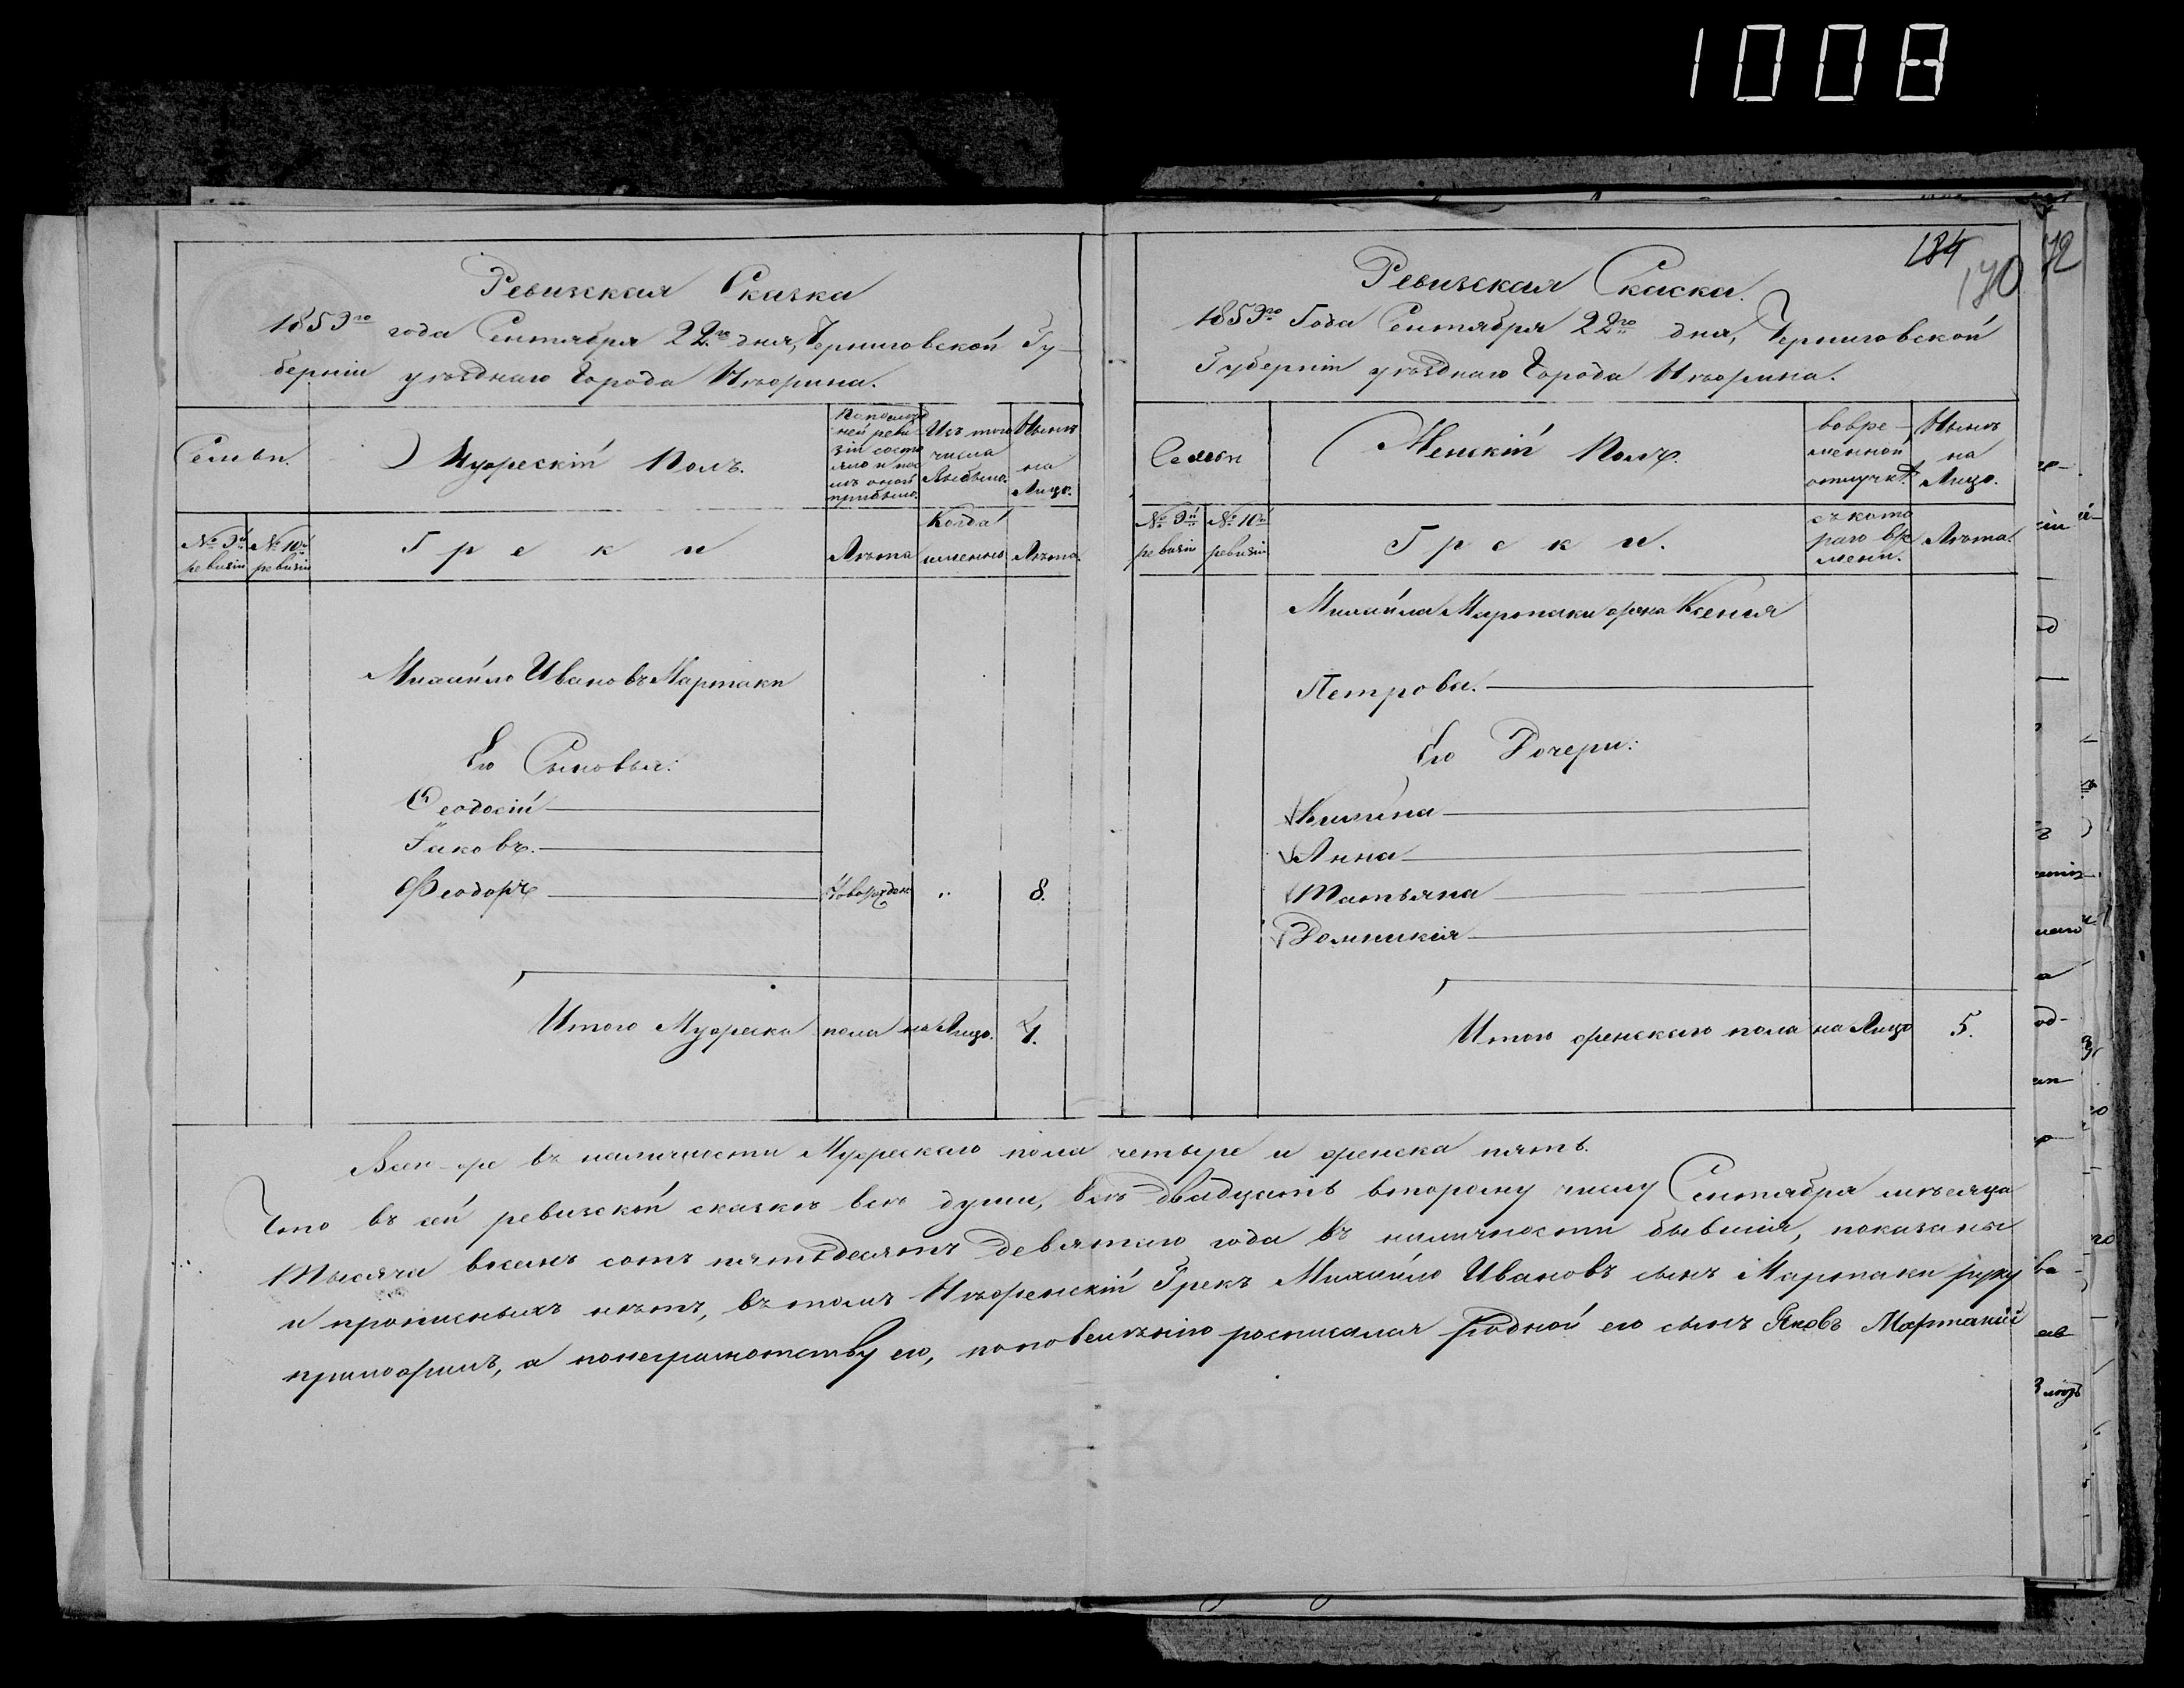 1008
Ревизская Сказка
1859го года Сентября 22го дня, Черниговской Гу-
берніи уѣзднаго Города Нѣжина.
Семьи.
Мужескій Полъ.
По послѣд
ней реви
зіи состо
яло и пос
лѣ оной
прибыло.
Изъ того
числа
Выбыло.
Нынѣ
на
Лицо.
№ 9й
ревизіи
№ 10й
ревизіи
Греки
Лѣта
Когда
именно
Лѣта.
Михайло Ивановъ Мартаки
Его Сыновья:
Ѳеодосій
Іаковъ.
Феодоръ
Новорожден
8.
Итого Мужеска пола на Лицо. 4.
184
170
72
Ревизская Скаска.
1859го Года Сентября 22го дня, Черниговской
Губерніи уѣзднаго Города Нѣжина.
Семьи
Женскій Полъ.
во вре-
менной
отлучкѣ.
Нынѣ
на
Лицо.
№ 9й
ревизіи
№ 10й
ревизіи
Греки.
съ кото
раго вре
мени.
Лѣта.
Михайла Мартаки жена Ксенія
Петрова.
Его Дочери:
Анна
Татьяна
Домникія
Итого женскаго пола на Лицо 5.
Всего-же въ наличности Мужескаго пола четыре и женска пять.
Что въ сей ревизской сказкѣ всѣ души, двадцать второму числу Сентября мѣсяца
Тысяча восемь сотъ пятьдесятъ девятаго года въ наличности бывшія, показаны
и прописныхъ нѣтъ, въ томъ Нѣженскій Грекъ Михайло Ивановъ сынъ Мартаки руку
приложилъ, а по неграмотству его, по повелѣнію росписался родной его сынъ Яковъ Мартакій